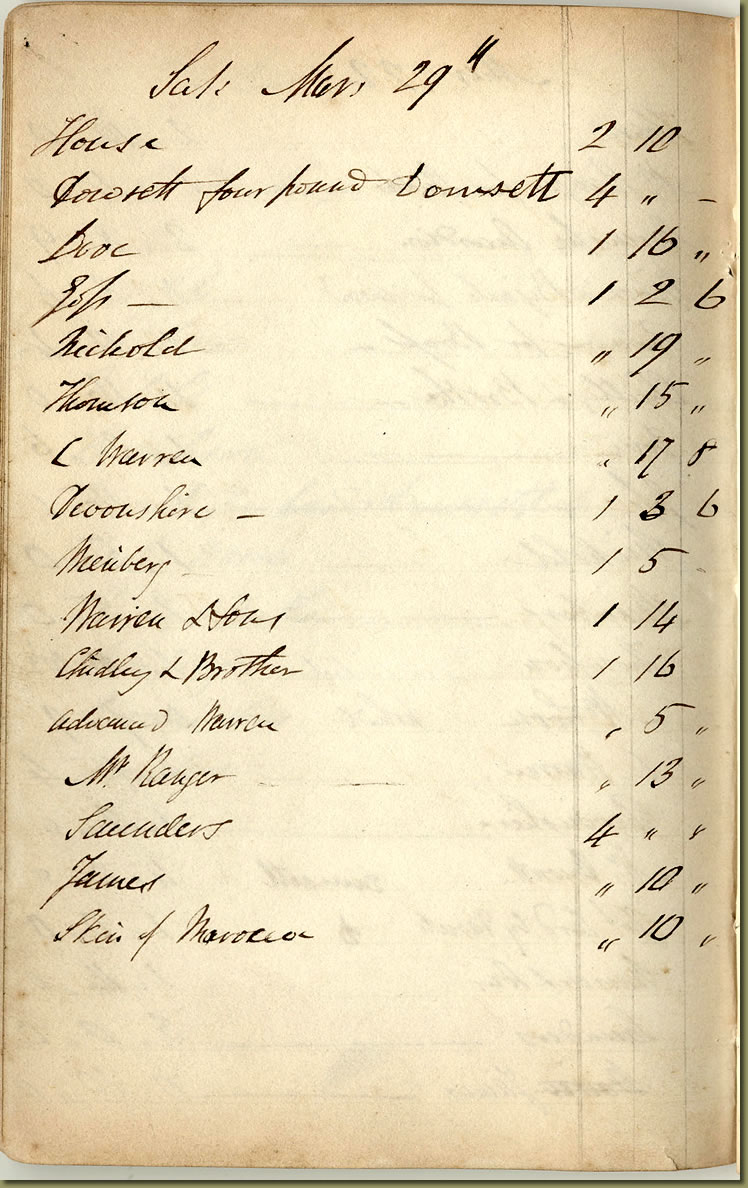 Sat. Mar. 29th
House 2 10
Dowsett four pound Domsett 4 " -
Dove 1 16 "
Goss — 1 2 6
Nickold " 19 "
Thomson " 15 "
C Warren " 17 8
Devonshire — 1 3 6
Meiberg 1 5 -
Warren & Sons 1 14
Chidley & Brother 1 16
advanced Warren " 5 "
Mr. Ranger " 13 "
Saunders 4 " "
James " 10 "
Skin of Morocco " 10 "